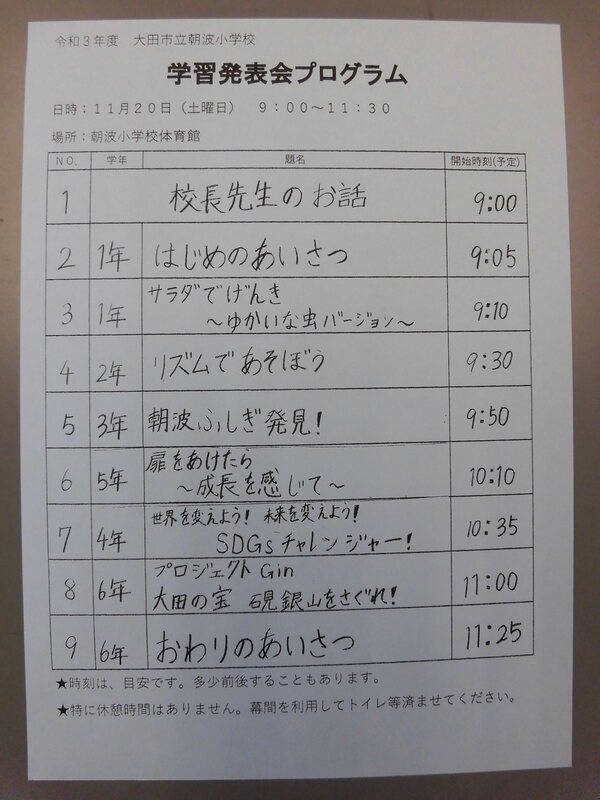 令和３年度　大田市立朝波小学校
学習発表会プログラム
日時：１１月２０日（土曜日）　９：００～１１：３０
場所：朝波小学校体育館
NO. 学年 題名 開始時刻(予定)
1 校長先生のお話 9:00
2 1年 はじめのあいさつ 9:05
3 1年 サラダでげんき
～ゆかいな虫バージョン～ 9:10
4 2年 リズムであそぼう 9:30
5 3年 朝波ふしぎ発見! 9:50
6 5年 扉をあけたら
～成長を感じて～ 10:10
7 4年 世界を変えよう! 未来を変えよう!
SDGsチャレンジャー! 10:35
8 6年 プロジェクトGin
大田の宝 石見銀山をさぐれ! 11:00
9 6年 おわりのあいさつ 11:25
★時刻は、目安です。多少前後することもあります。
★特に休憩時間はありません。幕間を利用してトイレ等済ませてください。